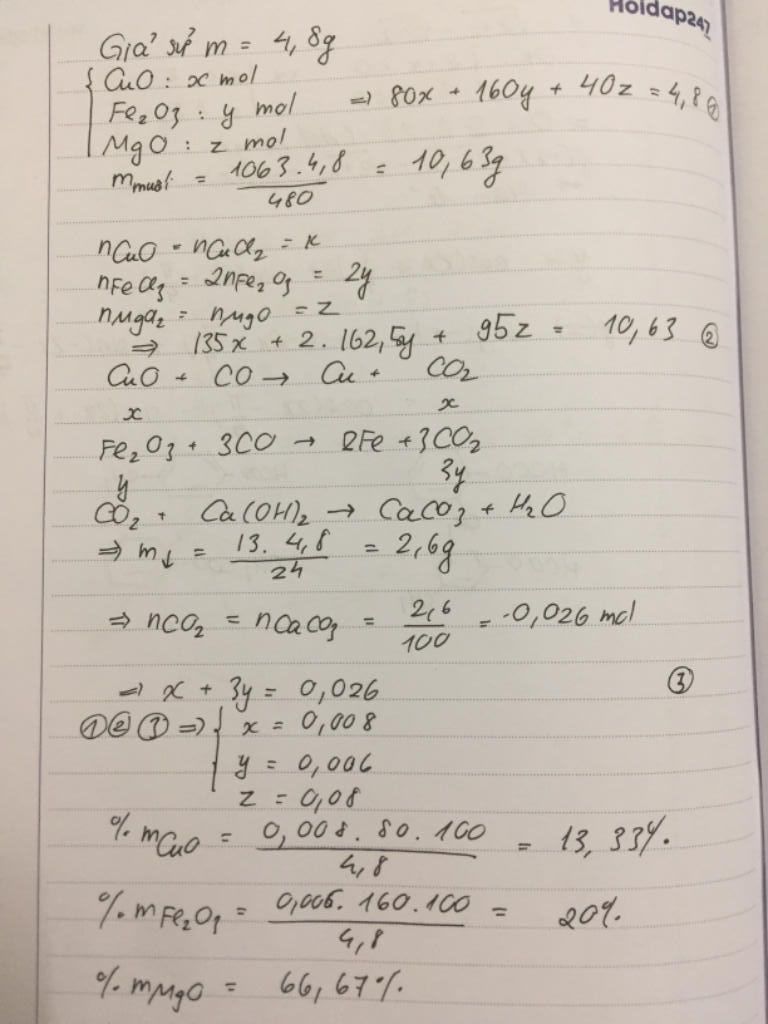 Hoidap247
Giả sử m = 4,8g
CuO : x mol
Fe2O3 : y mol ⇒ 80x + 160y + 40z = 4,8 ①
MgO : z mol
m muối = 1063.4,8 / 480 = 10,63g
nCuO = nCuCl2 = x
nFeCl3 = 2nFe2O3 = 2y
nMgCl2 = nMgO = z
⇒ 135x + 2.162,5y + 95z = 10,63 ②
CuO + CO → Cu + CO2
x x
Fe2O3 + 3CO → 2Fe + 3CO2
y 3y
CO2 + Ca(OH)2 → CaCO3 + H2O
⇒ m↓ = 13.4,8 / 24 = 2,6g
⇒ nCO2 = nCaCO3 = 2,6 / 100 = 0,026 mol
⇒ x + 3y = 0,026 ③
①②③ ⇒ x = 0,008
y = 0,006
z = 0,08
% mCuO = 0,008.80.100 / 4,8 = 13,33%.
%.mFe2O3 = 0,006.160.100 / 4,8 = 20%.
%.mMgO = 66,67%.